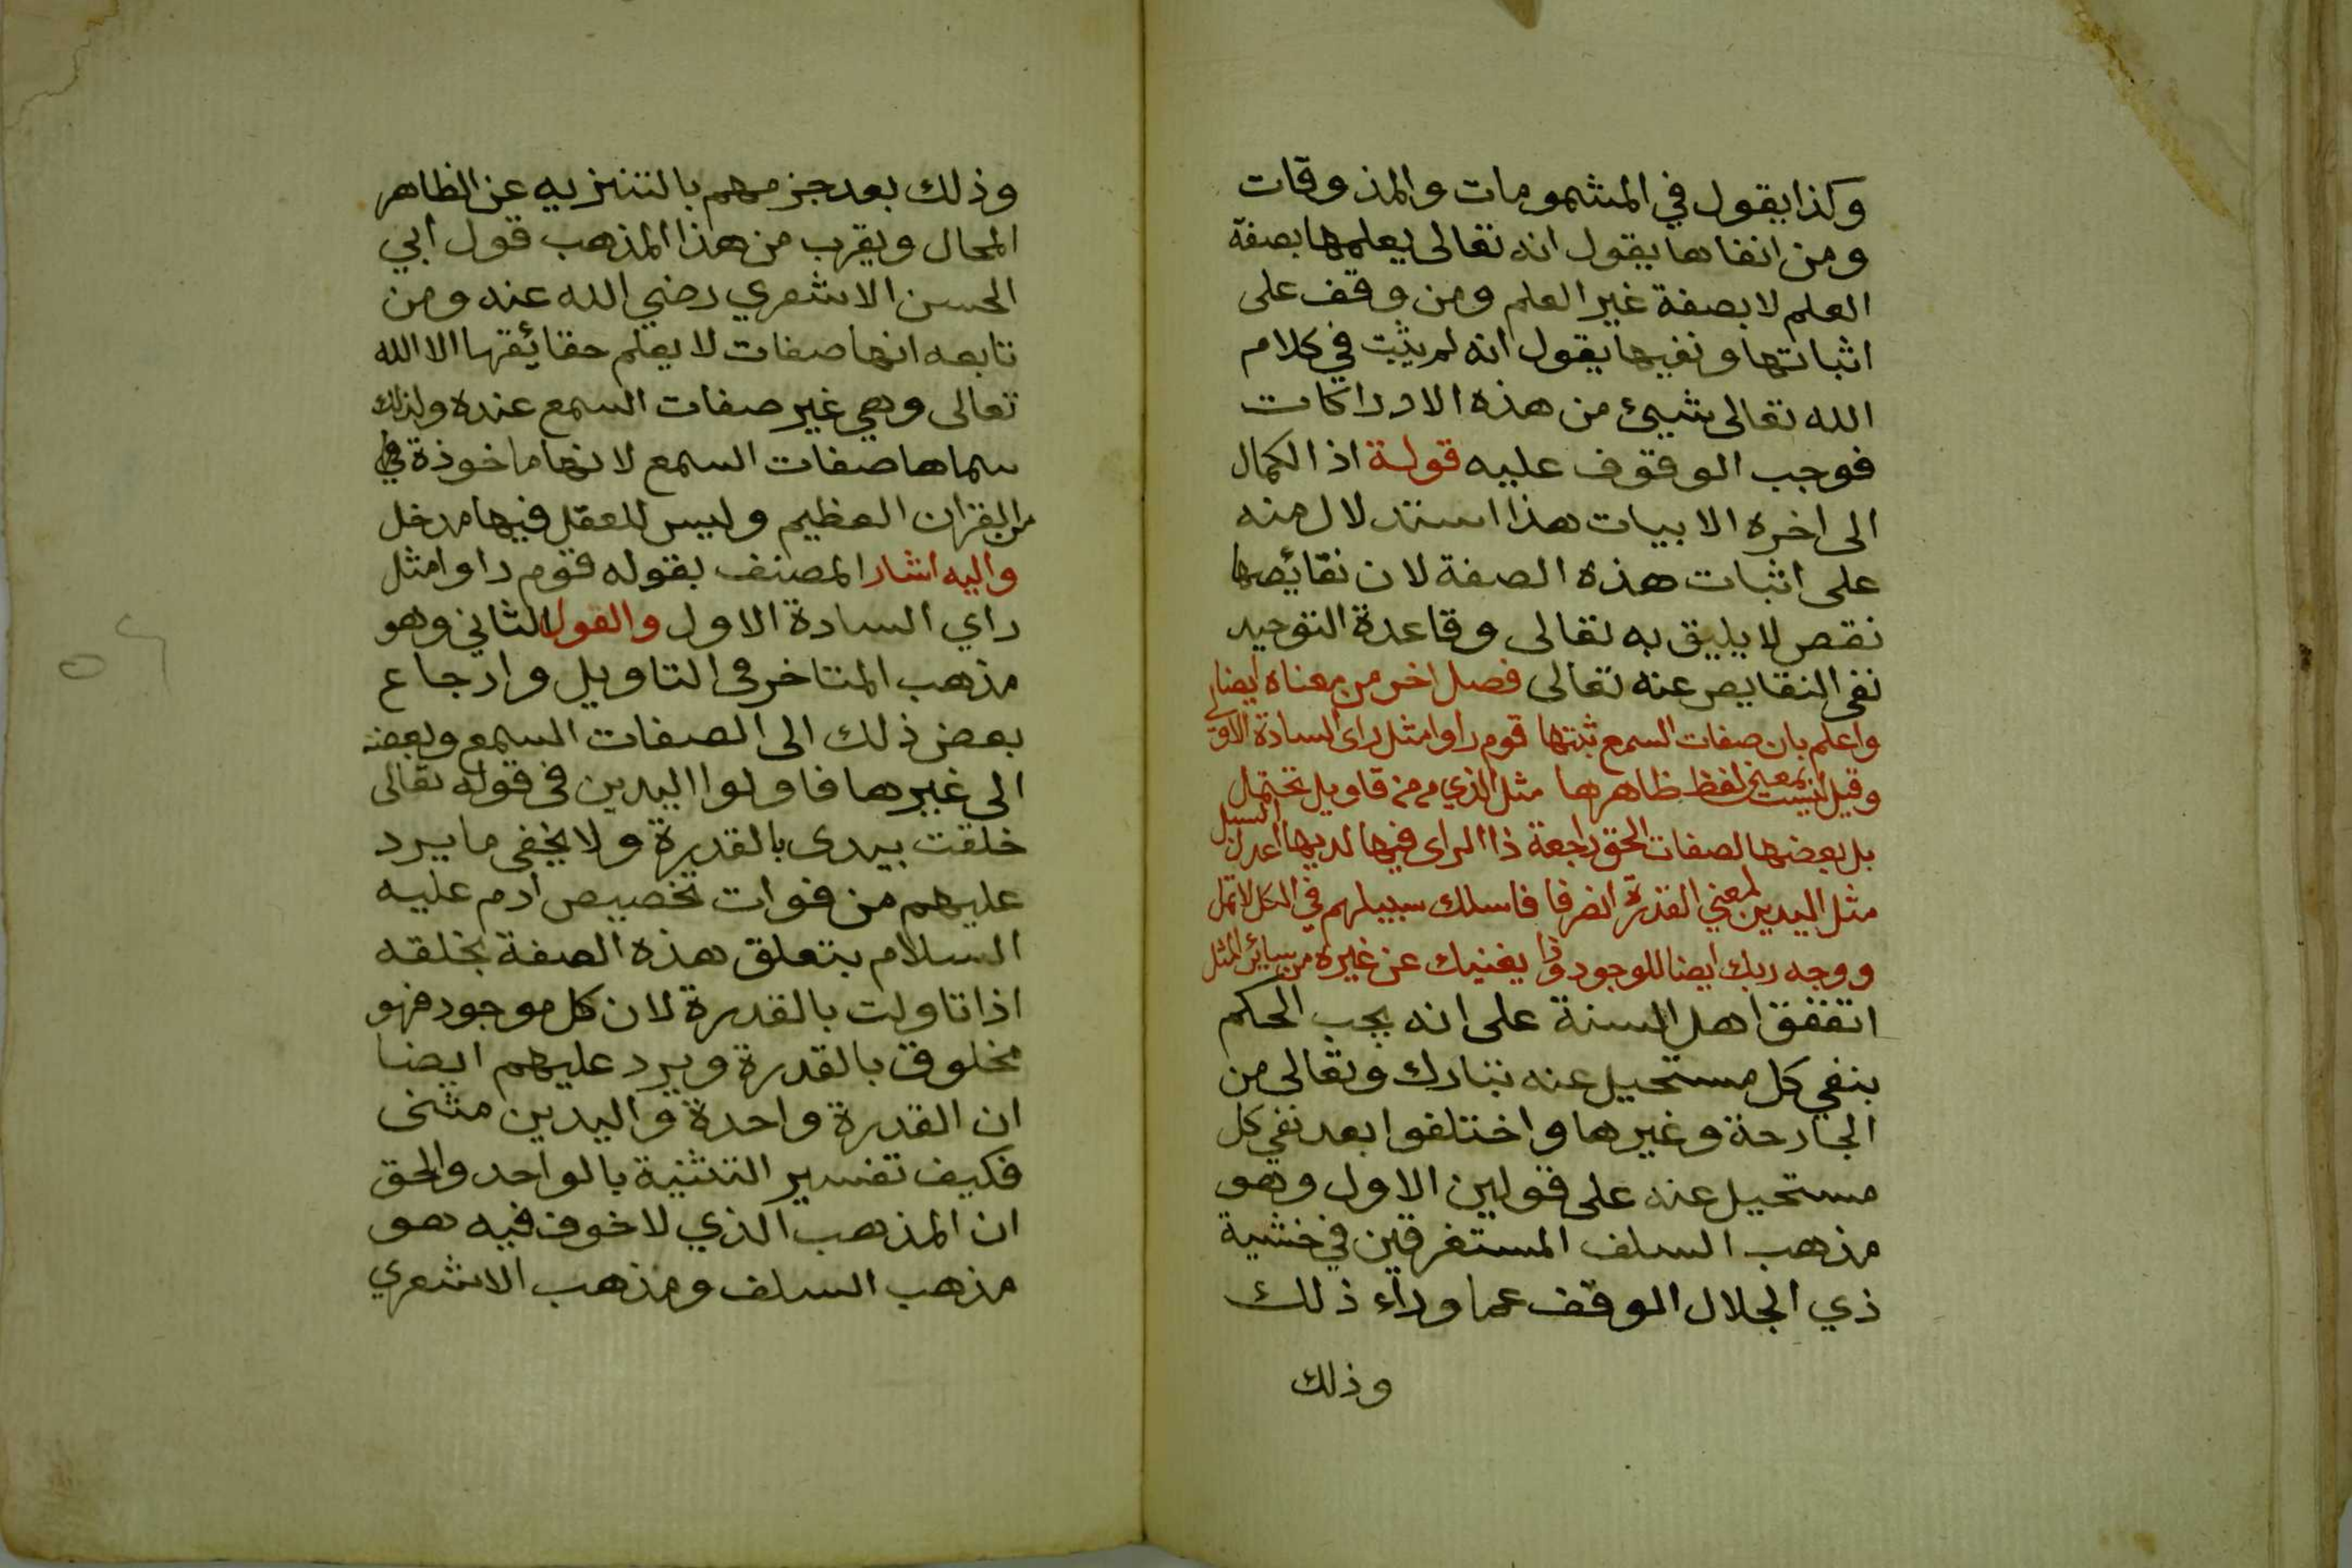 وكذا يقول في المشمومات والمذوقات
ومن انفاها يقول انه تعالى يعلمها بصفة
العلم لا بصفة غير العلم ومن وقف على
اثباتها ونفيها يقول انه لم يثبت في كلام
الله تعالى شيئ من هذه الادراكات
فوجب الوقوف عليه قولة اذ الكمال
الى اخره الابيات هذا استدلال منه
على اثبات هذه الصفة لان نقائصها
نقص لا يليق به تعالى وقاعدة التوحيد
نفى النقايص عنه تعالى فصل اخر من معناه ايضا
واعلم بان صفات السمع ثبتها قوم راوا مثل راى السادة الاول
وقيل ليست بمعنى لفظ ظاهرها مثل الذي من تاويل تحتمل
بل بعضها لصفات الحق راجعة ذا الراى فيها لديها اعدل السبل
مثل اليدين لمعني القدرة انصرفا فاسلك سبيلهم في الكل لا تمل
ووجه ربك ايضا للوجود وذا يغنيك عن غيره من سائر المثل
اتققق اهل السنة على انه يجب الحكم
بنفي كل مستحيل عنه تبارك وتعالى من
الجارحة وغيرها واختلفوا بعد نفي كل
مستحيل عنه على قولين الاول وهو
مذهب السلف المستغرقين في خشية
ذي الجلال الوقف عما وراء ذلك
وذلك
وذلك بعد جزمهم بالتنزيه عن الظاهر
المحال ويقرب من هذا المذهب قول ابي
الحسن الاشعري رضي الله عنه ومن
تابعه انها صفات لا يعلم حقائقها الا الله
تعالى وهي غير صفات السمع عنده ولذلك
سماها صفات السمع لانها ماخوذة في
من القران العظيم وليس للعقل فيها مدخل
واليه اشار المصنف بقوله قوم راوا مثل
راي السادة الاول والقول الثاني وهو
مذهب المتاخرى التاويل وارجاع
بعض ذلك الى الصفات السمع وبعضه
الى غيرها فاولوا اليدين في قوله تعالى
خلقت بيدى بالقدرة ولا يخفى ما يرد
عليهم من فوات تخصيص ادم عليه
السلام بتعلق هذه الصفة بخلقه
اذا تاولت بالقدرة لان كل موجود فهو
مخلوق بالقدرة ويرد عليهم ايضا
ان القدرة واحدة واليدين مثنى
فكيف تفسير التثنية بالواحد والحق
ان المذهب الذي لا خوف فيه هو
مذهب السلف ومذهب الاشعري